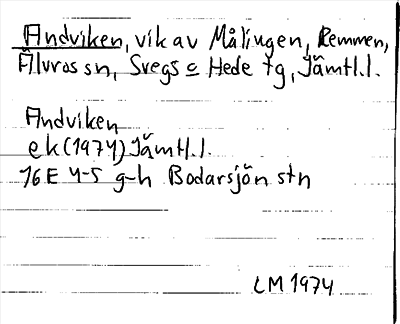 Andviken, vik av Målingen, Remmen,
Älvros sn, Svegs o Hede tg, Jämtl.l.
Andviken
ek (1974) Jämtl.l.
16E 4-5 g-h Bodarsjön stn
LM 1974